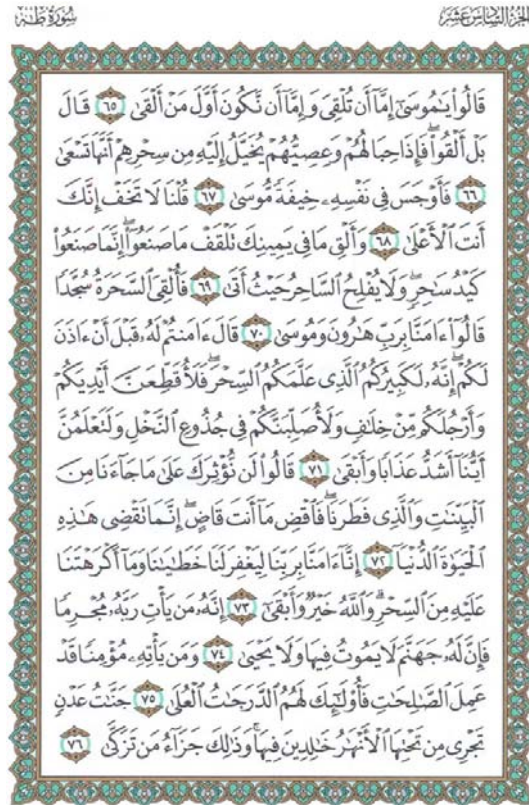 الجزء السادس عشر
سورة طه
قَالُوا۟ يَـٰمُوسَىٰٓ إِمَّآ أَن تُلْقِىَ وَإِمَّآ أَن نَّكُونَ أَوَّلَ مَنْ أَلْقَىٰ ٦٥ قَالَ
بَلْ أَلْقُوا۟ ۖ فَإِذَا حِبَالُهُمْ وَعِصِيُّهُمْ يُخَيَّلُ إِلَيْهِ مِن سِحْرِهِمْ أَنَّهَا تَسْعَىٰ
٦٦ فَأَوْجَسَ فِى نَفْسِهِۦ خِيفَةً مُّوسَىٰ ٦٧ قُلْنَا لَا تَخَفْ إِنَّكَ
أَنتَ ٱلْأَعْلَىٰ ٦٨ وَأَلْقِ مَا فِى يَمِينِكَ تَلْقَفْ مَا صَنَعُوٓا۟ ۖ إِنَّمَا صَنَعُوا۟
كَيْدُ سَـٰحِرٍ ۖ وَلَا يُفْلِحُ ٱلسَّاحِرُ حَيْثُ أَتَىٰ ٦٩ فَأُلْقِىَ ٱلسَّحَرَةُ سُجَّدًا
قَالُوٓا۟ ءَامَنَّا بِرَبِّ هَـٰرُونَ وَمُوسَىٰ ٧٠ قَالَ ءَامَنتُمْ لَهُۥ قَبْلَ أَنْ ءَاذَنَ
لَكُمْ ۖ إِنَّهُۥ لَكَبِيرُكُمُ ٱلَّذِى عَلَّمَكُمُ ٱلسِّحْرَ ۖ فَلَأُقَطِّعَنَّ أَيْدِيَكُمْ
وَأَرْجُلَكُم مِّنْ خِلَـٰفٍ وَلَأُصَلِّبَنَّكُمْ فِى جُذُوعِ ٱلنَّخْلِ وَلَتَعْلَمُنَّ
أَيُّنَآ أَشَدُّ عَذَابًا وَأَبْقَىٰ ٧١ قَالُوا۟ لَن نُّؤْثِرَكَ عَلَىٰ مَا جَآءَنَا مِنَ
ٱلْبَيِّنَـٰتِ وَٱلَّذِى فَطَرَنَا ۖ فَٱقْضِ مَآ أَنتَ قَاضٍ ۖ إِنَّمَا تَقْضِى هَـٰذِهِ
ٱلْحَيَوٰةَ ٱلدُّنْيَآ ٧٢ إِنَّآ ءَامَنَّا بِرَبِّنَا لِيَغْفِرَ لَنَا خَطَـٰيَـٰنَا وَمَآ أَكْرَهْتَنَا
عَلَيْهِ مِنَ ٱلسِّحْرِ ۗ وَٱللَّهُ خَيْرٌ وَأَبْقَىٰٓ ٧٣ إِنَّهُۥ مَن يَأْتِ رَبَّهُۥ مُجْرِمًا
فَإِنَّ لَهُۥ جَهَنَّمَ لَا يَمُوتُ فِيهَا وَلَا يَحْيَىٰ ٧٤ وَمَن يَأْتِهِۦ مُؤْمِنًا قَدْ
عَمِلَ ٱلصَّـٰلِحَـٰتِ فَأُو۟لَـٰٓئِكَ لَهُمُ ٱلدَّرَجَـٰتُ ٱلْعُلَىٰ ٧٥ جَنَّـٰتُ عَدْنٍ
تَجْرِى مِن تَحْتِهَا ٱلْأَنْهَـٰرُ خَـٰلِدِينَ فِيهَا ۚ وَذَٰلِكَ جَزَآءُ مَن تَزَكَّىٰ ٧٦